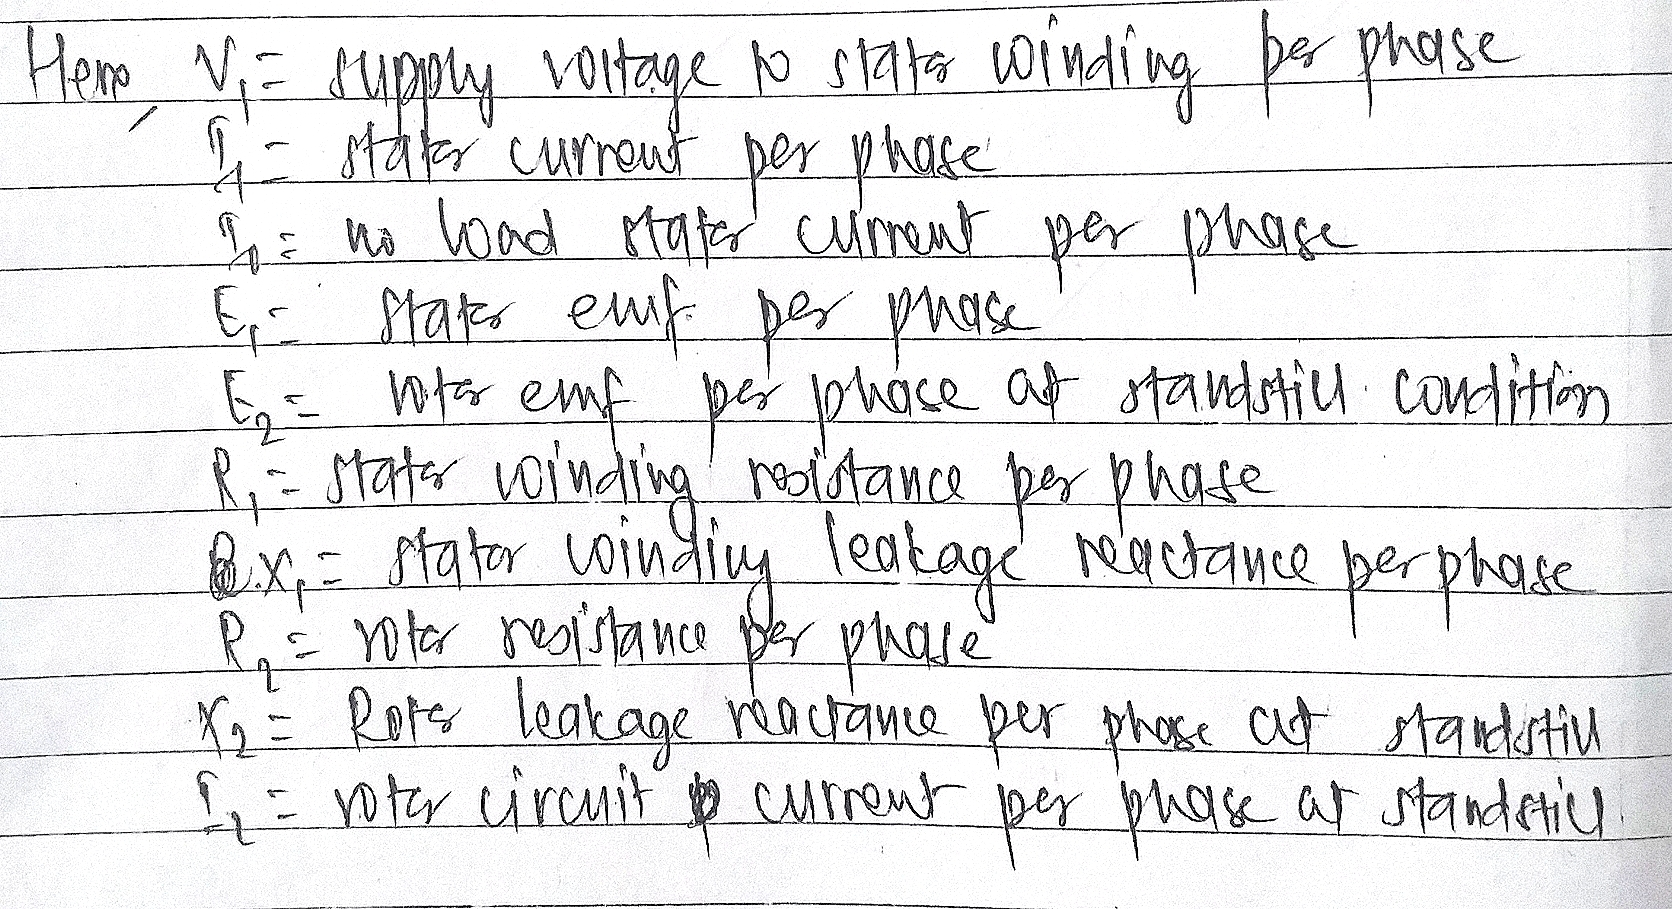 Here, V₁ = supply voltage to stator winding per phase
I₁ = stator current per phase
I₀ = no load stator current per phase
E₁ = stator emf per phase
E₂ = rotor emf per phase at standstill condition
R₁ = stator winding resistance per phase
X₁ = stator winding leakage reactance per phase
R₂ = rotor resistance per phase
X₂ = Rotor leakage reactance per phase at standstill
I₂ = rotor circuit current per phase at standstill.